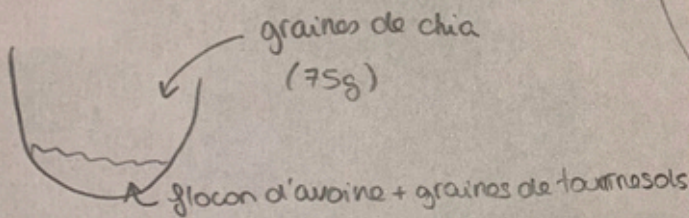 graines de chia
(75g)
flocon d'avoine + graines de tournesols